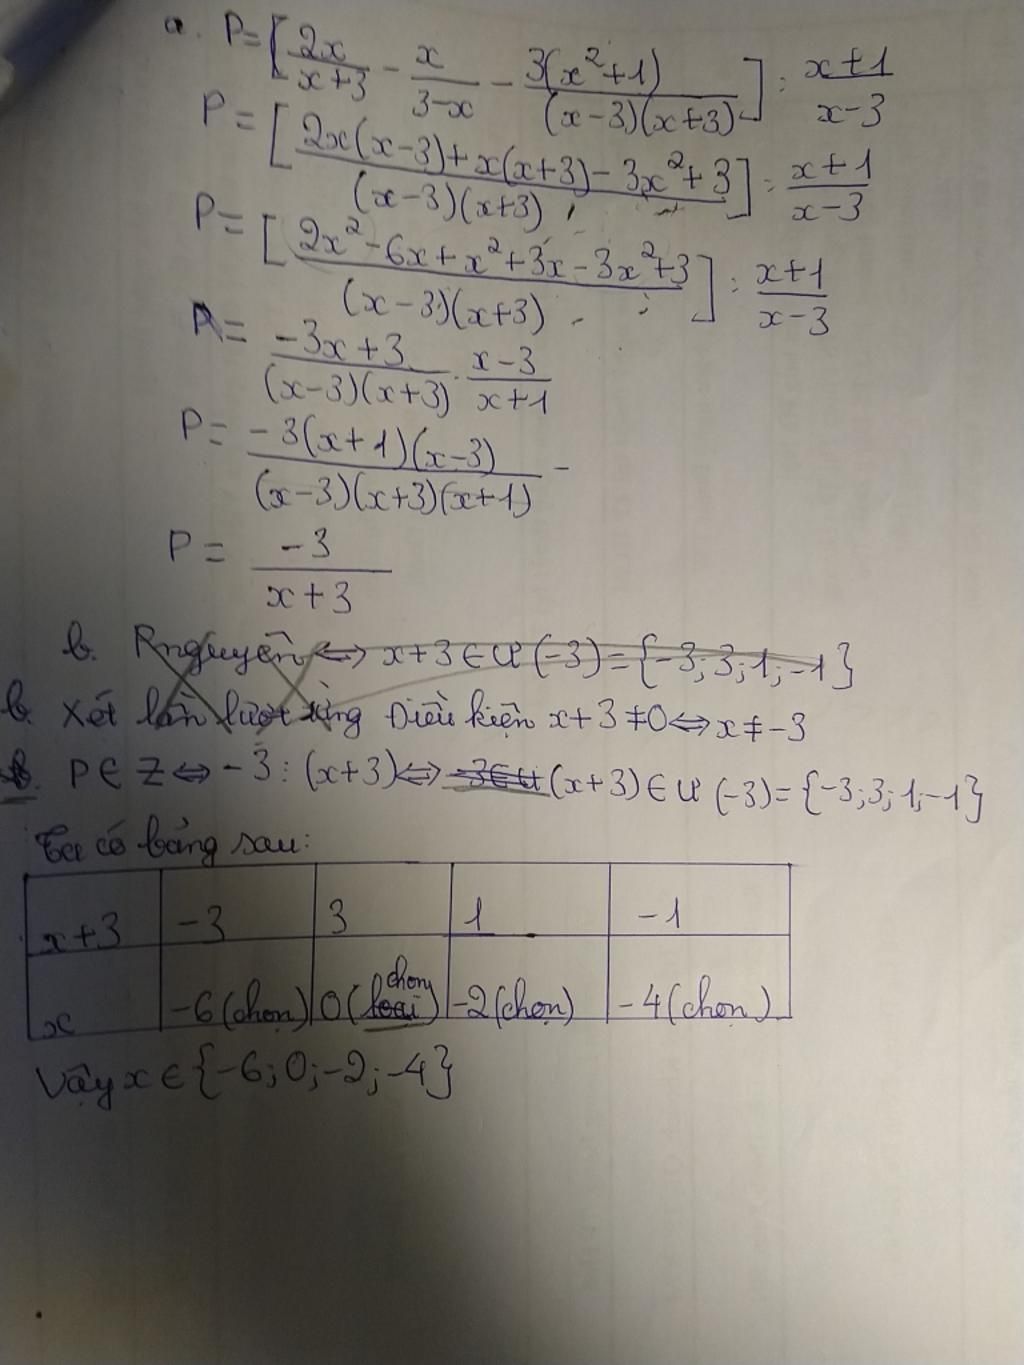 a. P = [2x/(x+3) - x/(3-x) - 3(x²+1)/((x-3)(x+3))] : (x+1)/(x-3)
P = [(2x(x-3)+x(x+3)-3x²+3)/((x-3)(x+3))] : (x+1)/(x-3)
P = [(2x²-6x+x²+3x-3x²+3)/((x-3)(x+3))] : (x+1)/(x-3)
P = (-3x+3)/((x-3)(x+3)) . (x-3)/(x+1)
P = (-3(x+1)(x-3))/((x-3)(x+3)(x+1))
P = -3/(x+3)
b. P nguyên ⇔ x+3 ∈ Ư (-3) = {-3; 3; 1; -1}
b. Xét lần lượt từng Điều kiện x+3 ≠ 0 ⇔ x ≠ -3
b. P ∈ Z ⇔ -3 : (x+3) ⇔ -3 ∈ Ư (x+3) ∈ Ư (-3) = {-3; 3; 1; -1}
Ta có bảng sau:
x+3 -3 3 1 -1
x -6 (chọn) 0 (loại chọn) -2 (chọn) -4 (chọn)
Vậy x ∈ {-6; 0; -2; -4}